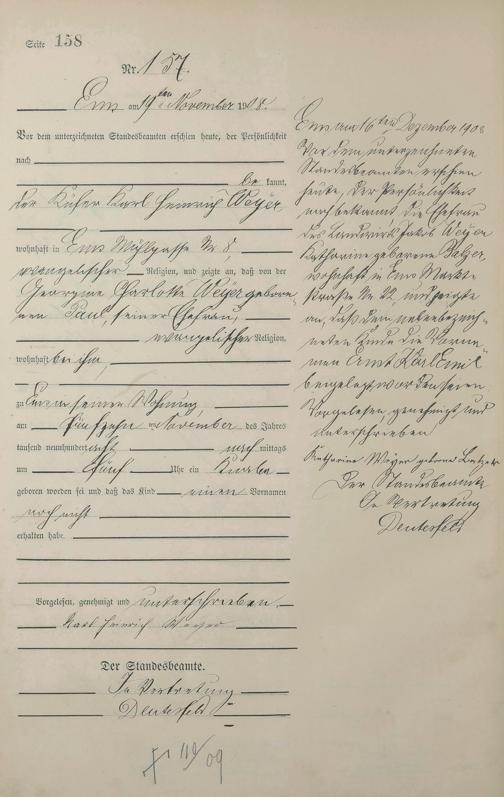 Seite 158
Nr. 157.
Ems am 19ten November 1908.
Vor dem unterzeichneten Standesbeamten erschien heute, der Persönlichkeit
nach
be kannt,
der Küfer Karl Heinrich Weyer
wohnhaft in Ems Mühlgasse Nr 8,
evangelischer Religion, und zeigte an, daß von der
Georgine Charlotte Weyer gebore-
nen Paul, seiner Ehefrau,
evangelischer Religion,
wohnhaft bei ihm,
zu Ems in seiner Wohnung,
am fünfzehn ten November des Jahres
tausend neunhundert acht nach mittags
um fünf Uhr ein Knabe
geboren worden sei und daß das Kind einen Vornamen
noch nicht
erhalten habe.
Vorgelesen, genehmigt und unterschrieben.
Karl Heinrich Weyer
Der Standesbeamte.
In Vertretung
Deutesfeld
Ems am 16ten Dezember 1908
Vor dem unterzeichneten
Standesbeamten erschien
heute, der Persönlichkeit
nach bekannt, die Ehefrau
des Landwirts Jakob Weyer
Katharine geborene
wohnhaft in Ems Markt-
straße Nr 22, und zeigte
an, daß dem nebenbezeich-
neten Kinde die Vorna-
men "Ernst Karl Emil"
beigelegt worden seien.
Vorgelesen, genehmigt und
unterschrieben
Katharine Weyer geborne
Der Standesbeamte
In Vertretung
Deutesfeld